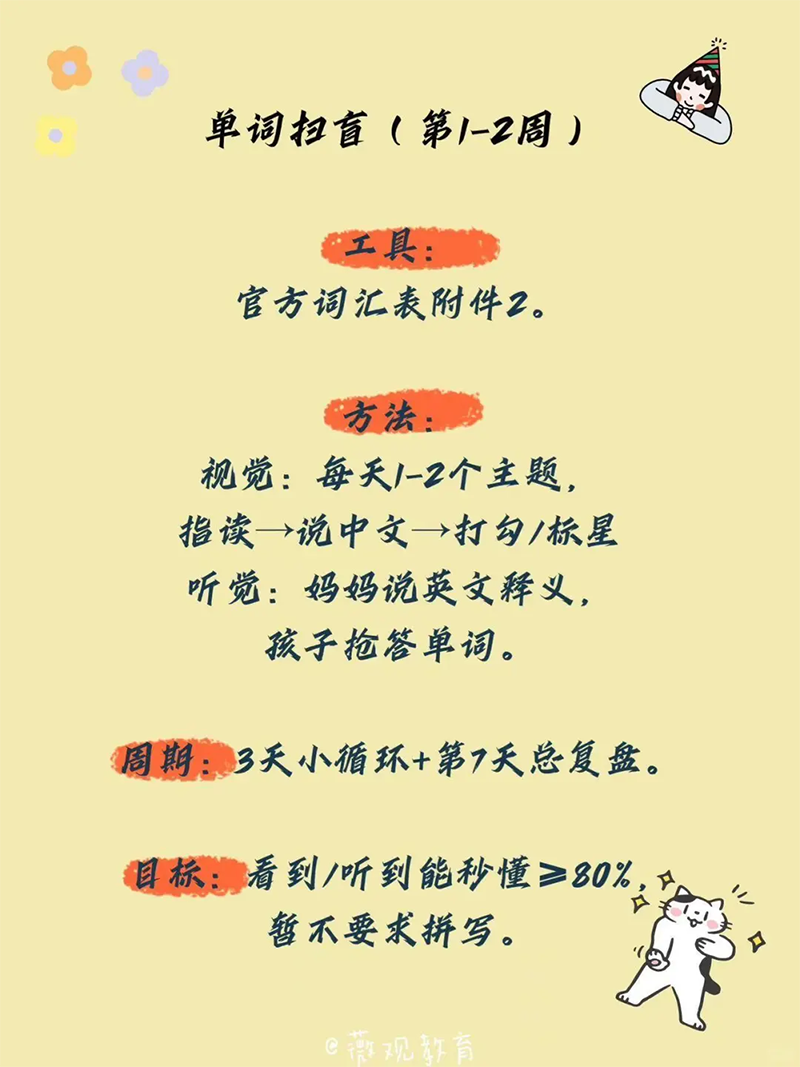 单词扫盲（第1-2周）
工具：
官方词汇表附件2。
方法：
视觉：每天1-2个主题，
指读→说中文→打勾/标星
听觉：妈妈说英文释义，
孩子抢答单词。
周期：3天小循环+第7天总复盘。
目标：看到/听到能秒懂≥80%，
暂不要求拼写。
@薇观教育